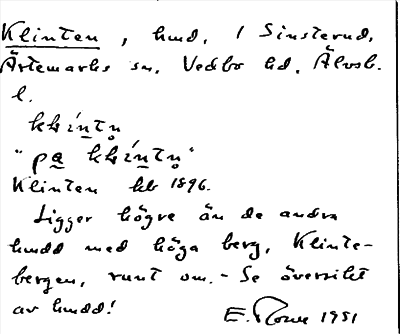 Klinten, hmd, 1 Sinsterud,
Ärtemarks sn, Vedbo hd, Älvsb.
l.
Klinten kb 1896.
Ligger högre än de andra
hmdd med höga berg, Klinte-
bergen, runt om. - Se översikt
av hmdd!
E. 1951